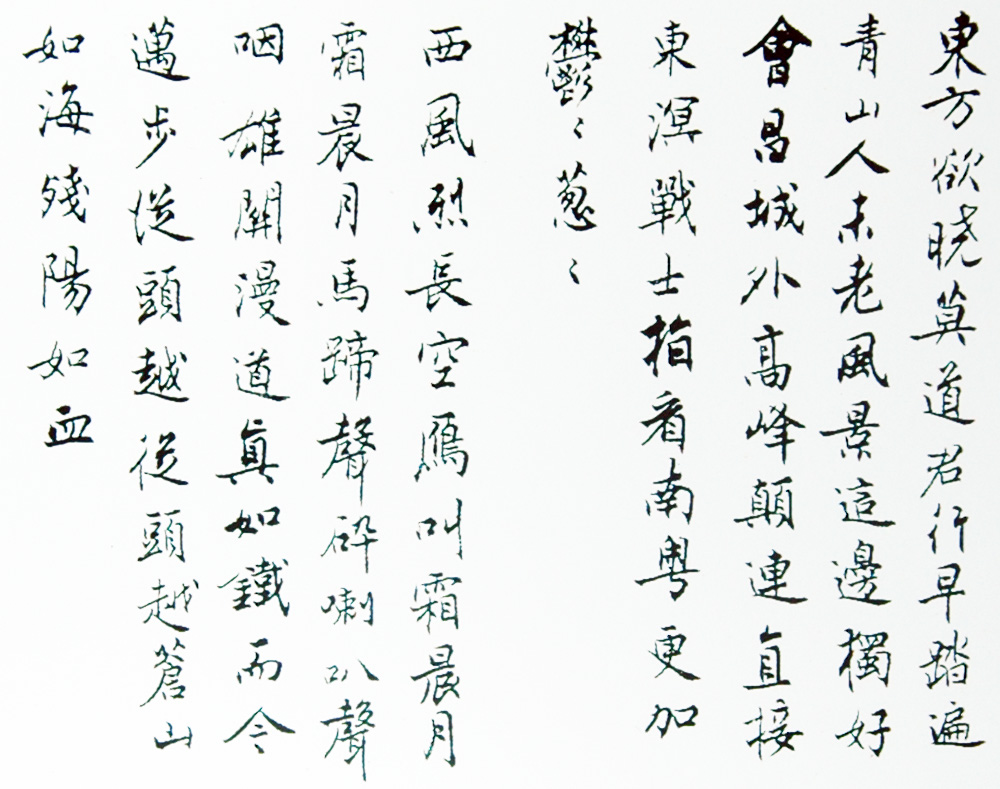 東方欲晓莫道君行早踏遍
青山人未老風景這邊獨好
會昌城外高峰顛連直接
東溟戰士指看南粵更加
鬱〻葱〻
西風烈長空鴈叫霜晨月
霜晨月馬蹄聲砕喇叭聲
咽雄關漫道真如鐵而今
邁步從頭越從頭越蒼山
如海殘陽如血